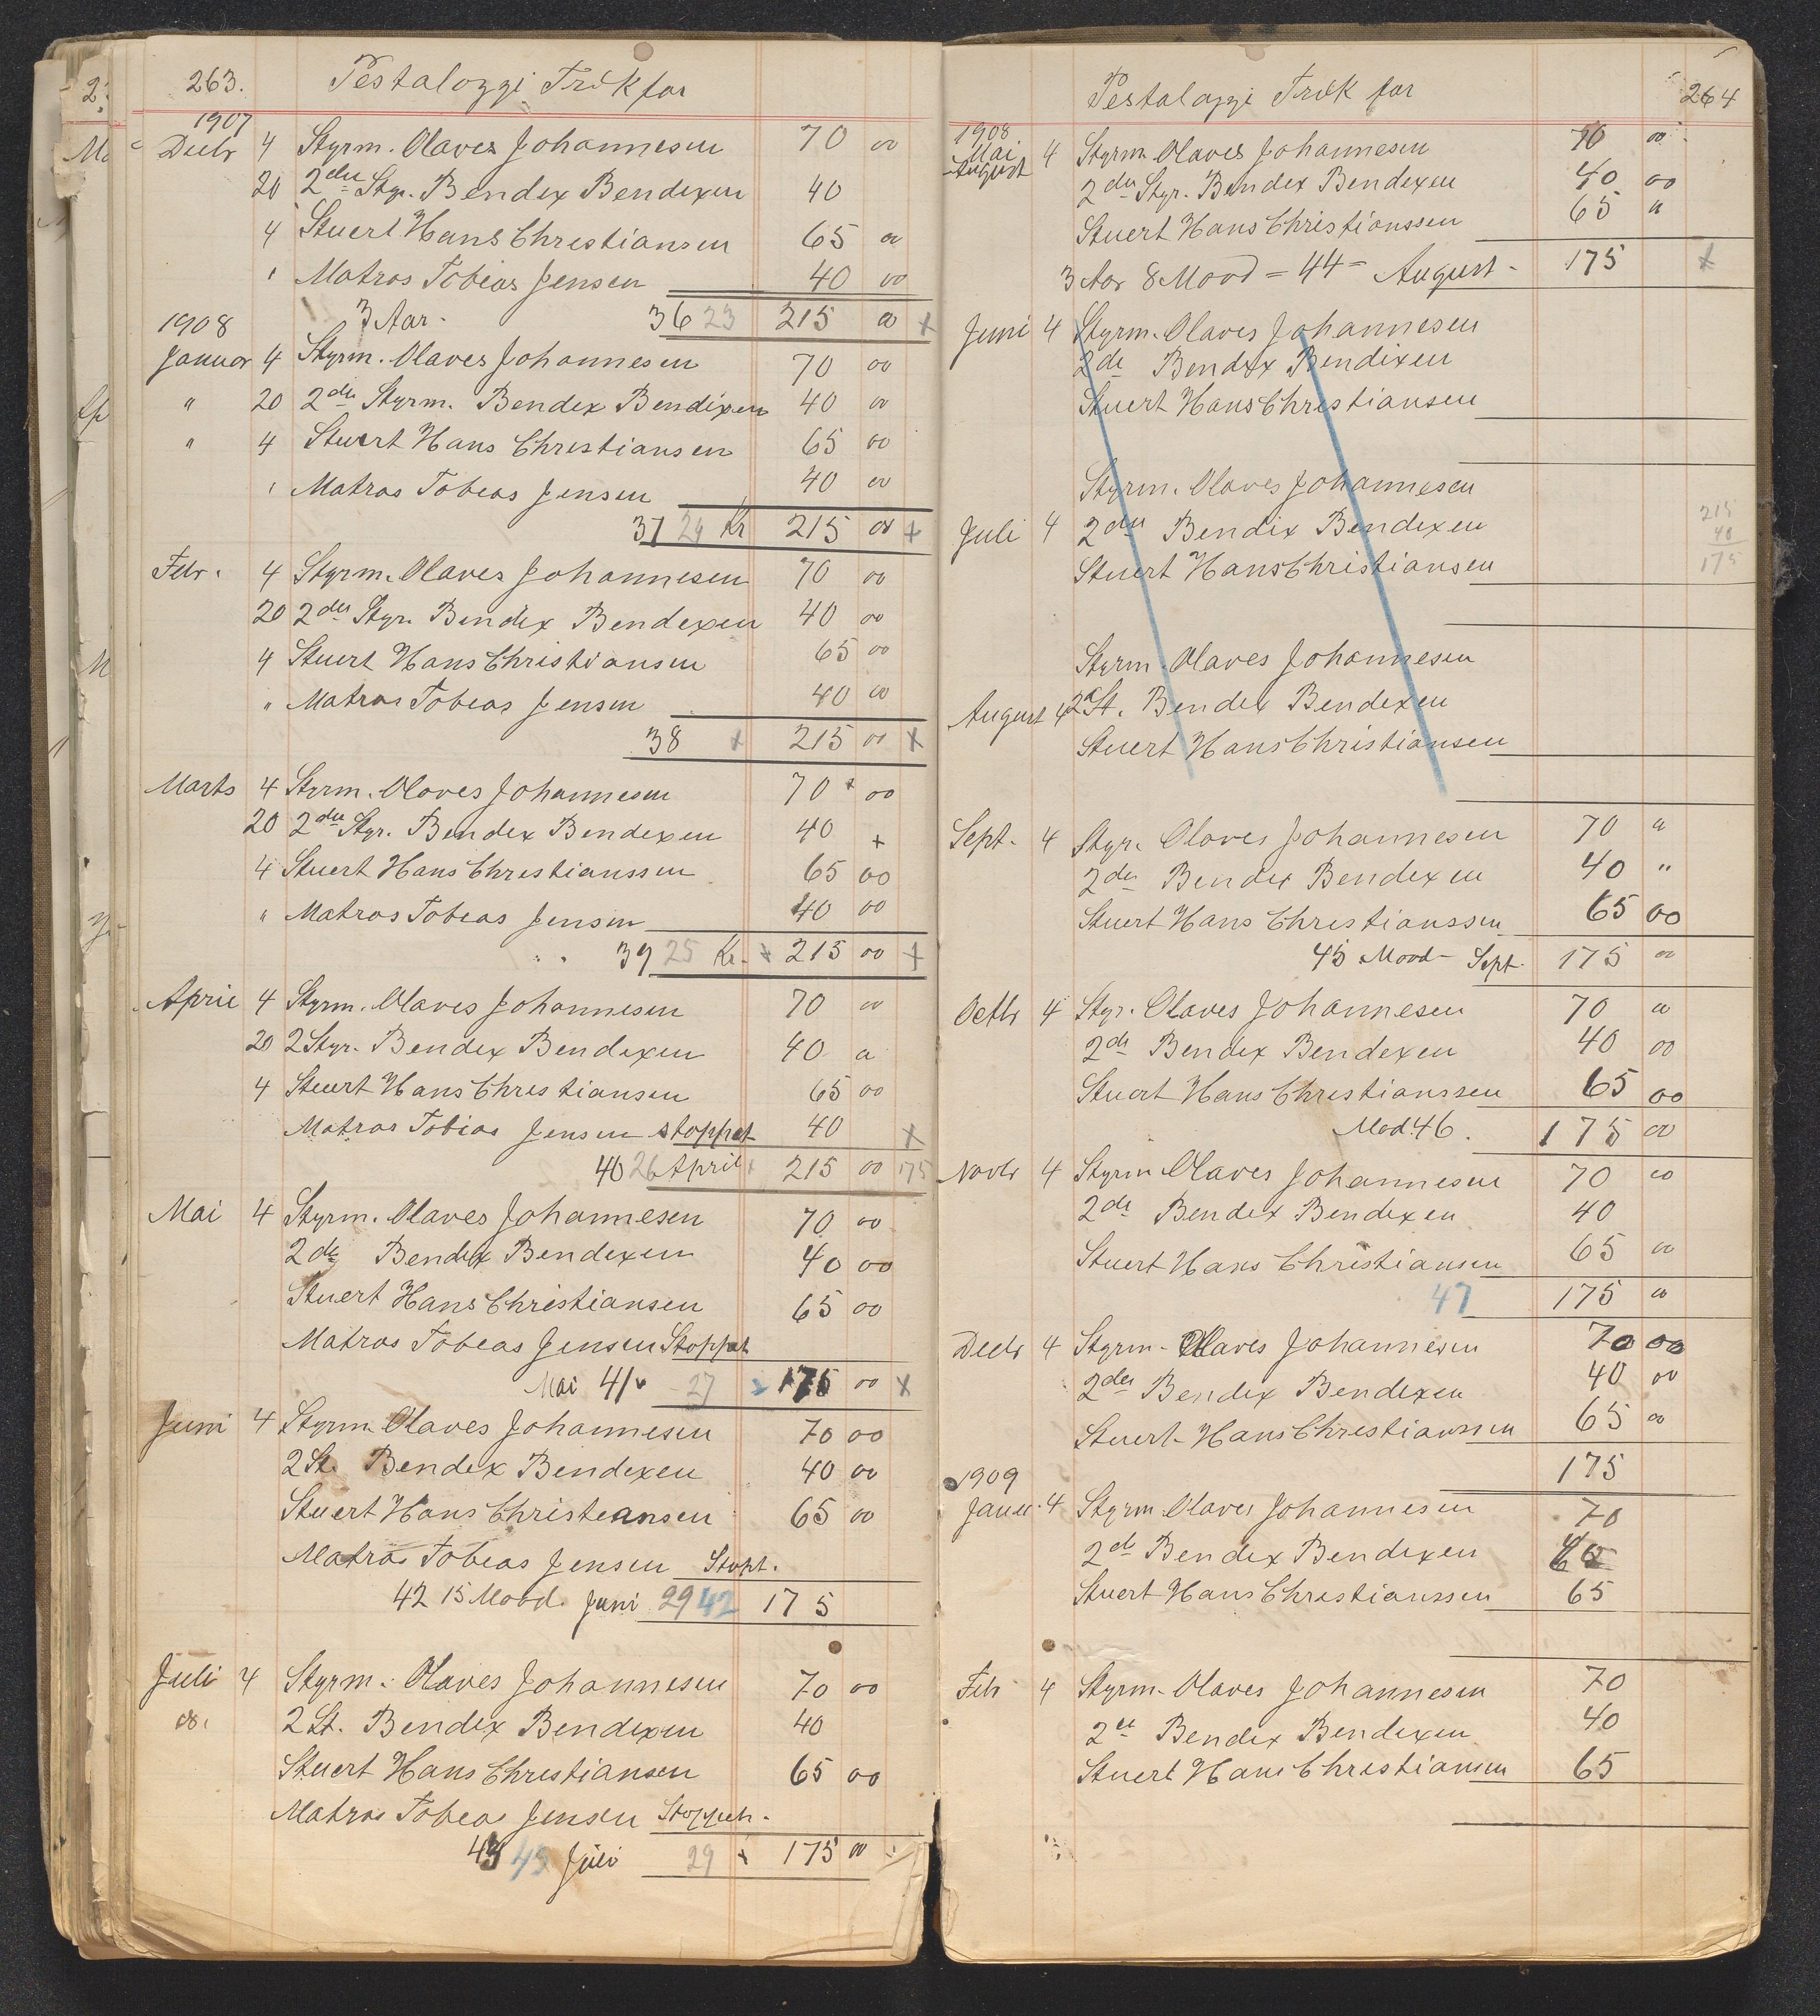 263. Pestalozzi Træk for
1907
Decbr 4 Styrm. Olaves Johannesen 70 00
20 2den Styr. Bendex Bendexen 40
4 Stuert Hans Christiansen 65 00
" Matros Tobias Jensen 40 00
3 Aar. 36 23 215 00 x
1908
Januar 4 Styrm. Olaves Johannesen 70 00
" 20 2den Styrm. Bendex Bendixen 40 00
" 4 Stuert Hans Christiansen 65 00
" Matros Tobeas Jensen 40 00
37 24 Kr 215 00 x
Febr. 4 Styrm. Olaves Johannesen 70 00
20 2den Styr. Bendex Bendexen 40 00
4 Stuert Hans Christiansen 65 00
" Matros Tobeas Jensen 40 00
38 x 215 00 x
Marts 4 Styrm. Olaves Johannesen 70 00
20 2den Styr. Bendex Bendexen 40 x
4 Stuert Hans Christianssen 65 00
" Matros Tobeas Jensen 40 00
39 25 Kr. x 215 00 x
April 4 Styrm. Olaves Johannesen 70 00
20 2 Styr. Bendex Bendexen 40 00
4 Stuert Hans Christiansen 65 00
Matros Tobias Jensen stoppet 40 x
40 26 April 215 00 175
Mai 4 Styrm. Olaves Johannesen 70 00
2de Bendex Bendexen 40 00
Stuert Hans Christiansen 65 00
Matros Tobeas Jensen Stoppet
Mai 41 27 175 00 x
Juni 4 Styrm. Olaves Johannesen 70 00
2 St. Bendex Bendexen 40 00
Stuert Hans Christeansen 65 00
Matros Tobeas Jensen Stopt.
42 15 Mood. Juni 29 42 175
Juli 4 Styrm. Olaves Johannesen 70 00
08. 2 St. Bendex Bendexen 40
Stuert Hans Christiansen 65 00
Matros Tobeas Jensen
43 43 Juli 29 x 175 00
Pestalozzi Træk for 264
1908
Mai
August 4 Styrm Olaves Johannesen 70 00
2den Styr. Bendex Bendexen 40 00
Stuert Hans Christianssen 65 "
3 Aar 8 Mood = 44 = August - 175 x
Juni 4 Styrm. Olaves Johannesen
2de Bendex Bendixen
Stuert Hans Christiansen
Styrm. Olaves Johannesen
Juli 4 2den Bendix Bendexen
Stuert Hans Christiansen
215
40
175
Styrm. Olaves Johannesen
August 4 2 St. Bendex Bendexen
Stuert Hans Christiansen
Sept. 4 Styr. Olaves Johannesen 70 "
2den Bendex Bendexen 40 "
Stuert Hans Christianssen 65 00
45 Mood - Sept. 175 00
Octbr 4 Styr. Olaves Johannesen 70 00
2de Bendex Bendexen 40 00
Stuert Hans Christianssen 65 00
Mod. 46. 175 00
Novbr 4 Styrm Olaves Johannesen 70 00
2de Bendex Bendexen 40
Stuert Hans Christiansen 65 00
47 175 00
Decbr 4 Styrm. Olaves Johannesen 70 00
2den Bendix Bendexen 40 00
Stuert Hans Christianssen 65 00
175
1909
Januar 4 Styrm Olaves Johannesen 70
2de Bendex Bendexen
Stuert Hans Christianssen 65
Feb 4 Styrm. Olaves Johannesen 70
2de Bendex Bendexen 40
Stuert Hans Christiansen 65